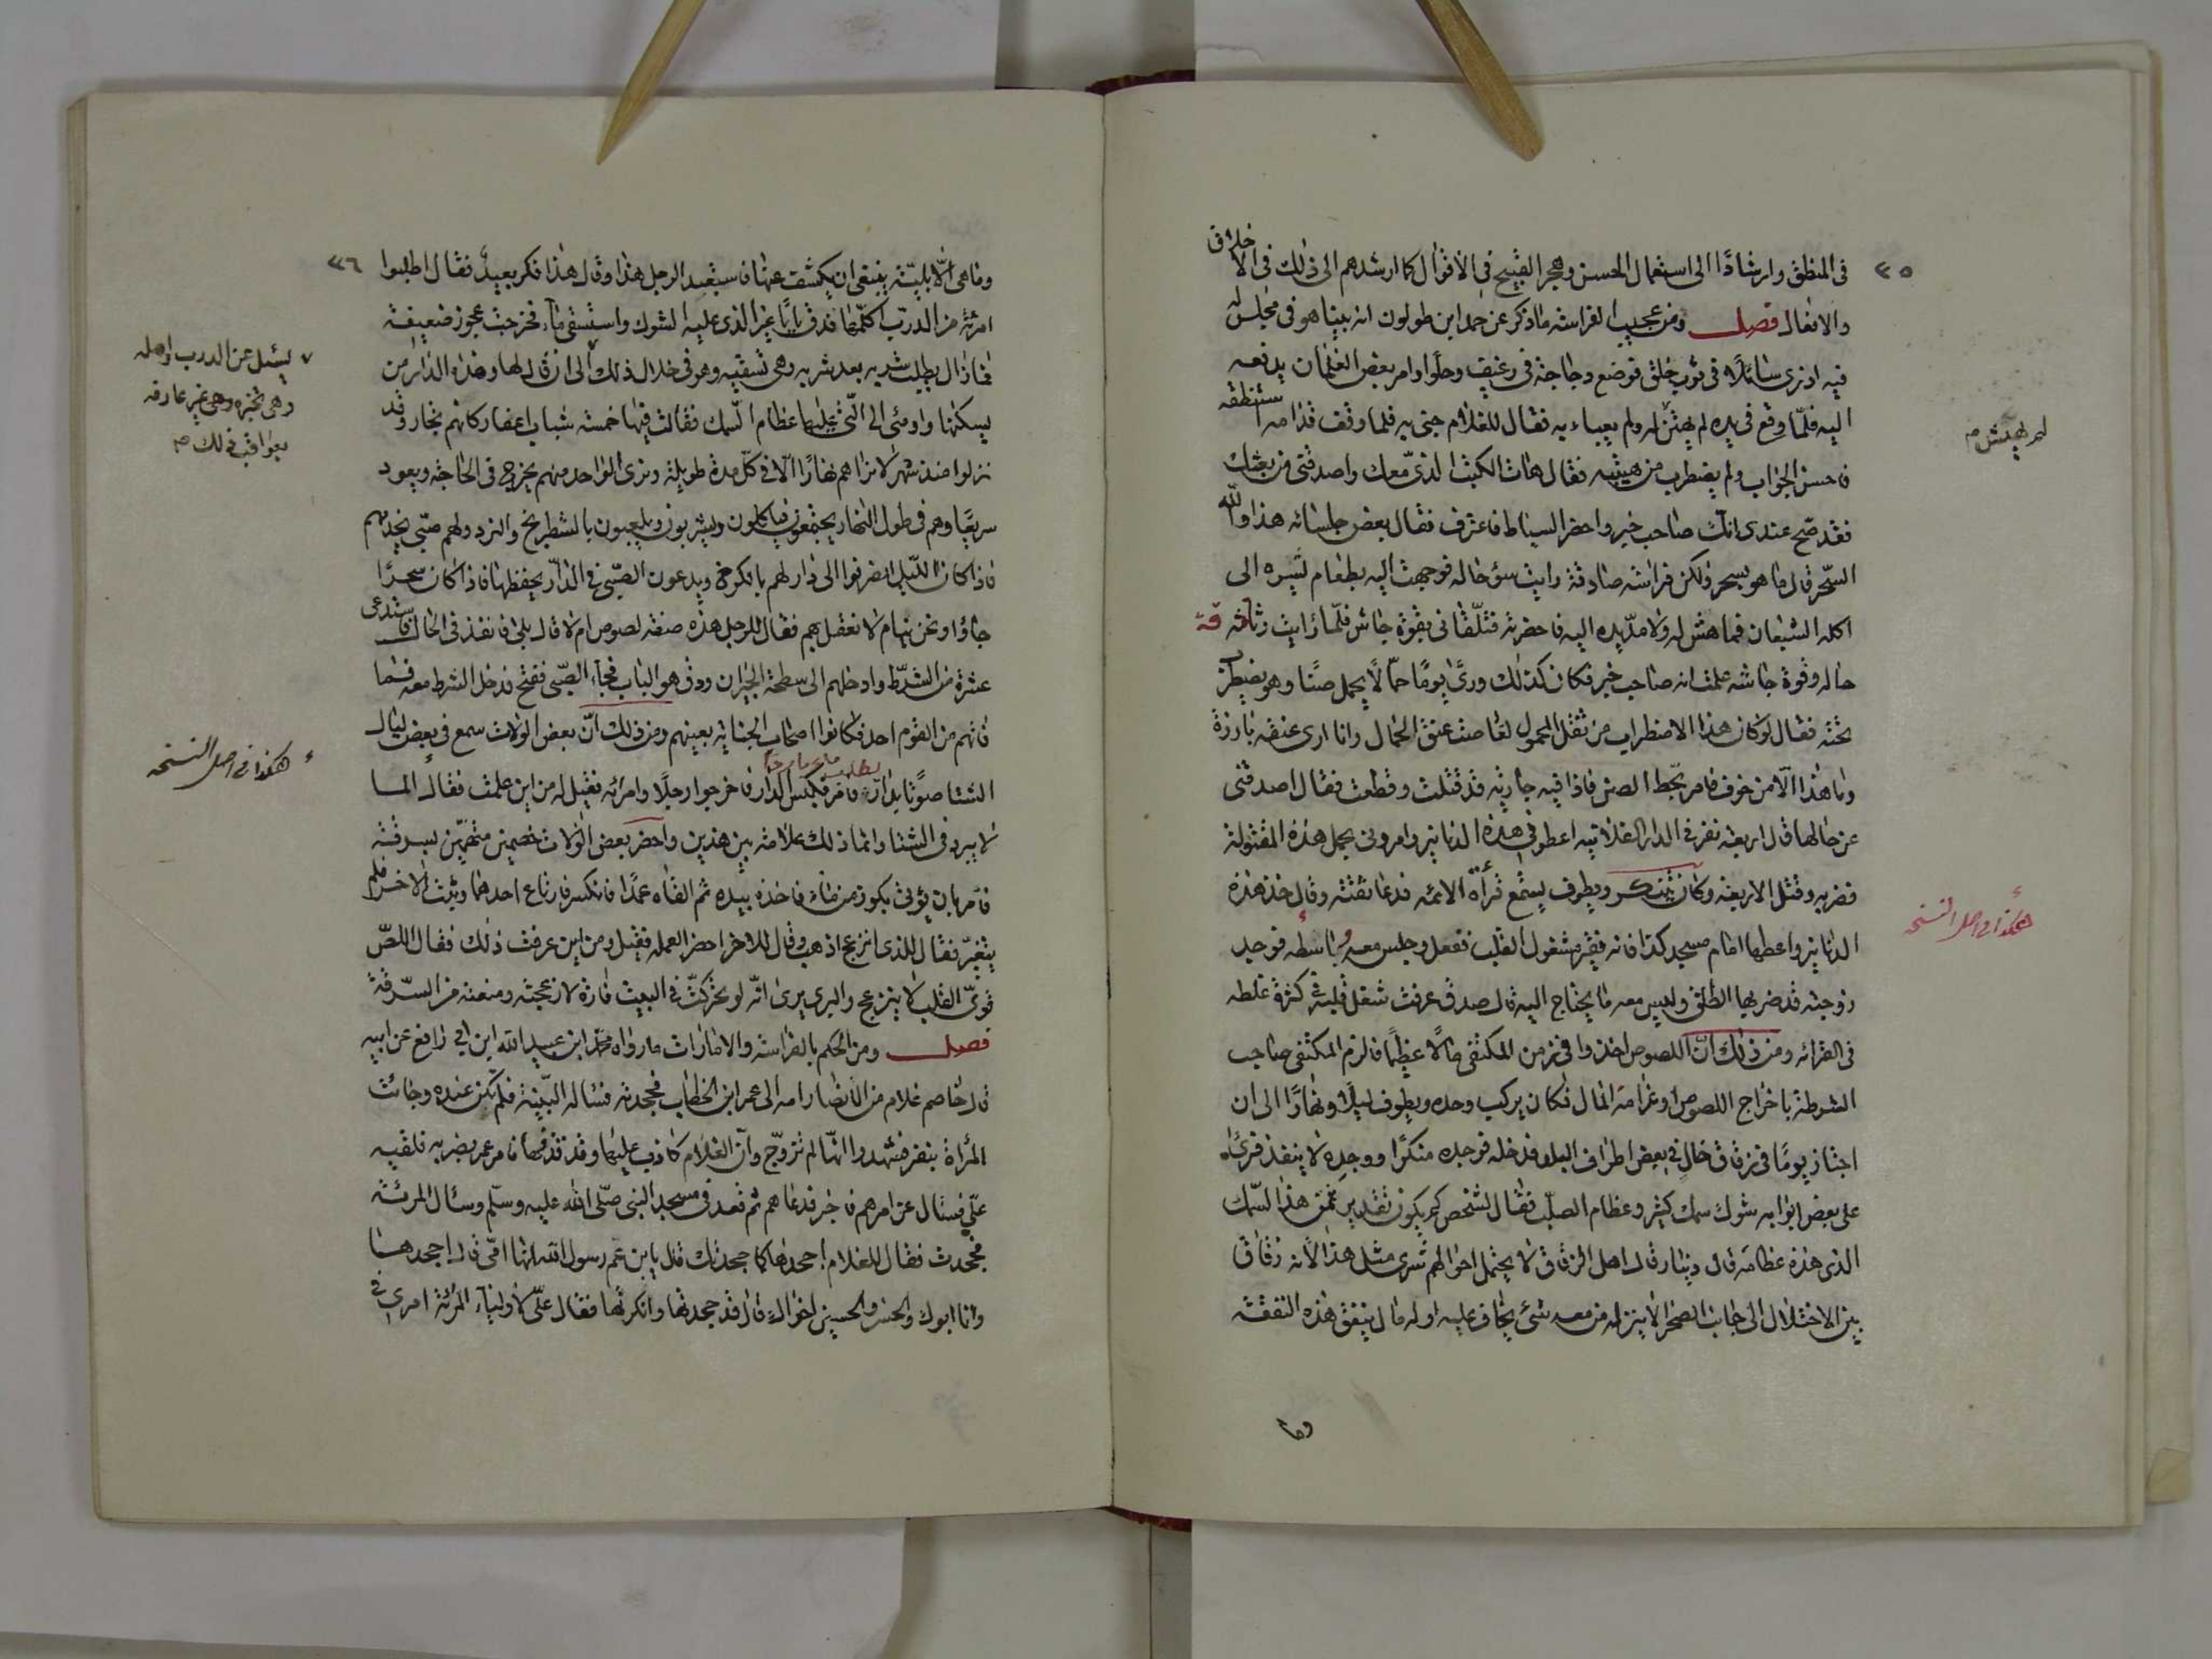 ٢٥
فى المنطق وارشادًا الى استعمال الحسن وهجر القبيح فى الاقوال كما ارشدهم الى ذلك فى الاخلاق
والافعال فصل ومن عجيب الفراسه ماذكر عن احمد ابن طولون انه بينا هو فى مجلس له
فيه اذ نرى سائلا فى ثوب خلق فوضع دجاجة فى رغيف وحلوا وامر بعض الغلمان يدفعه
اليه فلمّا وقع فى يده لم يهش له ولم يعباء به فقال للغلام جئ به فلما وقف قدامه استنطقه
فاحسن الجواب ولم يضطرب من هيبته فقال هات الكتب الذى معك واصدقنى من بعثك
فقد صحّ عندى انك صاحب خبر واحضر السياط فاعترف فقال بعض جلسائه هذا والله
السّحر قال ما هو بسحر ولكن فراسه صادقة رايت سؤ حاله فوجهت اليه بطعام يسره الى
اكله الشبعان فما هش له ولا مدّ يده اليه فاحضرته فتلقّانى بقوة جاش فلمّا رايت رثاثة
حاله وقوة جاشه علمت انه صاحب خبر فكان كذلك ورئ يومًا حمّالًا يحمل صنًا وهو يضطرب
تحته فقال لو كان هذا الاضطراب من ثقل المحمول لغاصت عنق الحمال وانا ارى عنقه بارزة
وما هذا الّا من خوف فامر بحط الصن فاذا فيه جارية قد قتلت وقطعت فقال اصدقنى
عن حالها قال اربعة نفر فى الدار الفلانيه اعطونى هذه الدنانير وامرونى بحمل هذه المقتولة
فضربه وقتل الاربعة وكان يتنكر ويطوف يستمع قرأة الائمه فدعا ثقته وقال خذ هذه
الدنانير واعطها امام مسجد كذا فانه فقير مشغول القلب ففعل وجلس معه وباسطه فوجد
زوجته قد ضربها الطلق وليس معه ما يحتاج اليه قال صدق عرفت شغل قلبه فى كثرة غلطه
فى القرائه ومن ذلك انّ اللصوص اخذوا فى زمن المكتفى مالًا عظيمًا فالزم المكتفى صاحب
الشرطة باخراج اللصوص او غرامة المال فكان يركب وحده ويطوف ليلًا ونهارًا الى ان
اجتاز يومًا فى زقاق خال فى بعض اطراف البلد فدخله فوجده منكرًا ووجده لا ينفذ فرئ
على بعض ابوابه شوك سمك كثير وعظام الصلب فقال لشخص كم يكون تقدير ثمن هذا السّمك
الذى هذه عظامه قال دينار قال اهل الزقاق لا يحتمل احوالهم شرى مثل هذا لانه زقاق
بين الاختلال الى جانب الصحرا لا ينزله من معه شئ يخاف عليه او له مال ينفق هذه النفقة
وما
لم يهش م
هكذا فى اصل النسخه
٢٦
وما هى الّا بليّة ينبغى ان يكشف عنها فاستبعد الرجل هذا وقال هذا فكر بعيد فقال اطلبوا
امرئة من الدرب اكلّمها فدق بابًا غير الذى عليه الشوك واستسقى ماء فخرجت عجوز ضعيفة
فما زال يطلب شربه بعد شربه وهى تسقيه وهو فى خلال ذلك الى ان قال لها وهذه الدار من
يسكنها واومئ الى الّتى عليها عظام السمك فقالت فيها خمسة شباب اعفار كانهم تجار وقد
نزلوا منذ شهر لا نراهم نهارًا الّا فى كلّ مدة طويلة ونرى الواحد منهم يخرج فى الحاجة ويعود
سريعًا وهم فى طول النهار يجتمعون فياكلون ويشربون ويلعبون بالشطرنج والنرد ولهم صبّى يخدمهم
فاذا كان اللّيل انصرفوا الى دار لهم بالكرخ ويدعون الصّبى فى الدار يحفظها فاذا كان سحرًا
جاؤا ونحن نيام لا نعقل بهم فقال للرجل هذه صفة لصوص ام لا قال بلى فانفذ فى الحال فاستدعى
عشرة من الشرّط وادخلهم الى سطحة الجيران ودق هو الباب فجاء الصّبى ففتح فدخل الشرط معه فما
فاتهم من القوم احد فكانوا اصحاب الجناية بعينهم ومن ذلك انّ بعض الولات سمع فى بعض ليال
الشتا صوتًا بدار فامر بكبس الدار فاخرجوا رجلًا وامرئه فقيل له من اين علمت فقال الماء
لا يبرد فى الشتا وانما ذلك علامة بين هذين واحضر بعض الولات خصمين متهمين بسرقة
فامر بان يؤتى بكوز من ماء فاخذه بيده ثم القاه عمدًا فانكسر فارتاع احدهما وثبت الاخر فلم
يتغيّر فقال للذى انزعج اذهب وقال للاخر احضر العمله فقيل ومن اين عرفت ذلك فقال اللصّ
قوىّ القلب لا ينزعج والبرى يرى انّه لو تحرّكت فى البيت فارة لازعجته ومنعته من السّرقة
فصل ومن الحكم بالفراسة والامارات ما رواه محمد ابن عبيد الله ابن ابى رافع عن ابيه
قال خاصم غلام من الانصار امه الى عمر ابن الخطاب فجحدته فساله البّينة فلم تكن عنده وجائت
المرأة بنفر فشهدوا انّها لم تتزوّج وانّ الغلام كاذب عليها وقد قذفها فامر عمر بضربه فلقيه
علّى فسال عن امرهم فاخبر فدعاهم ثم قعد فى مسجد النبى صلّى الله عليه وسلّم وسئال المرئة
فجحدت فقال للغلام اجحدها كما جحدتك قال يا بن عم رسول الله انها امّى قال اجحدها
وانا ابوك والحسن والحسين اخواك قال قد جحدتها وانكرتها فقال علّى لاولياء المرئة امرى فى
ليسئل عن الدرب واهله
وهى تخبره وهى غير عارفه
بعواقب ذلك م
هكذا فى اصل النسخه